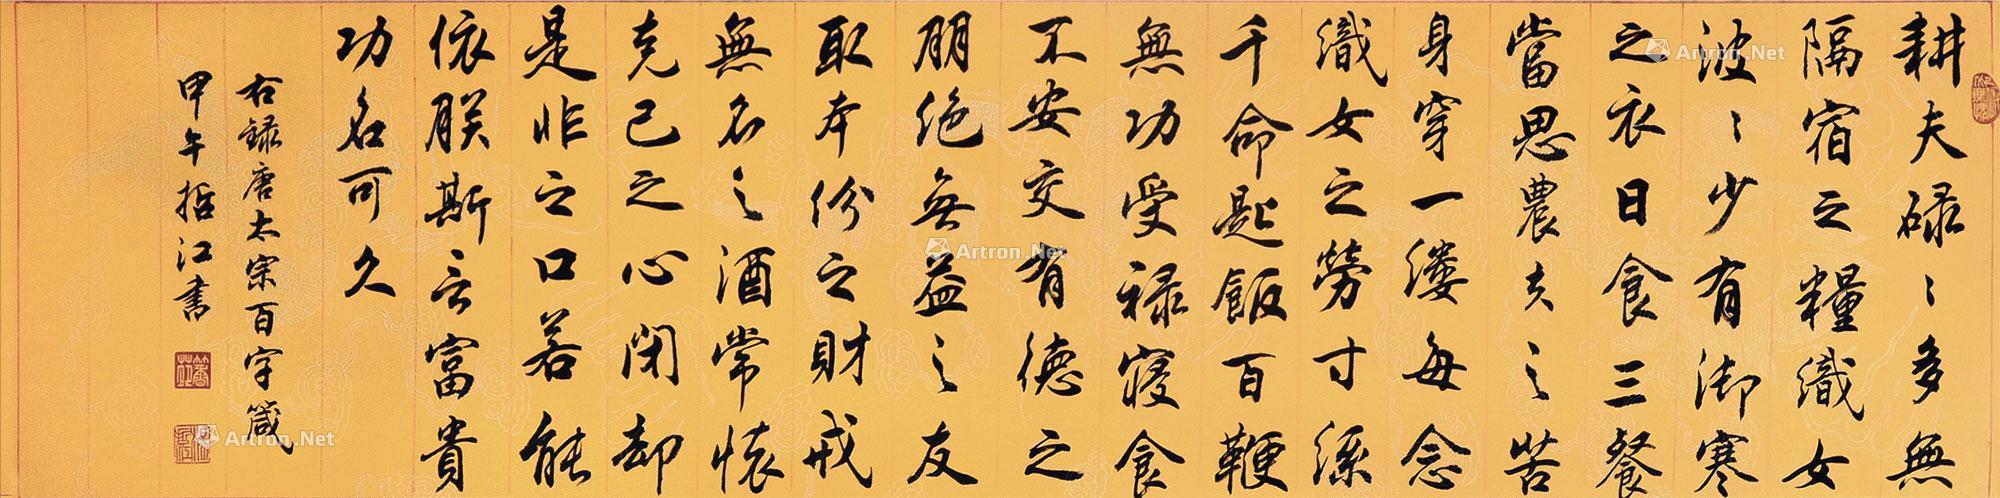 耕夫碌〻多無
隔宿之糧織女
波〻少有御寒
之衣日食三餐
當思農夫之苦
身穿一縷每念
織女之勞寸絲
千命匙飯百鞭
無功受祿寢食
不安交有德之
朋絶無益之友
取本份之財戒
無名之酒常懷
克己之心閉却
是非之口若能
依朕斯言富貴
功名可久
右録唐太宗百字箴
甲午括江書
Artron.Net
Artron.Net
Artron.Net
Artron.Net